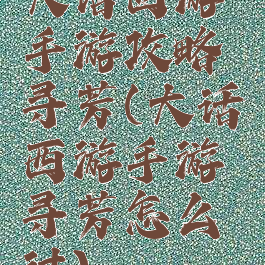 大话西游
手游攻略
寻芳(大话
西游手游
寻芳怎么